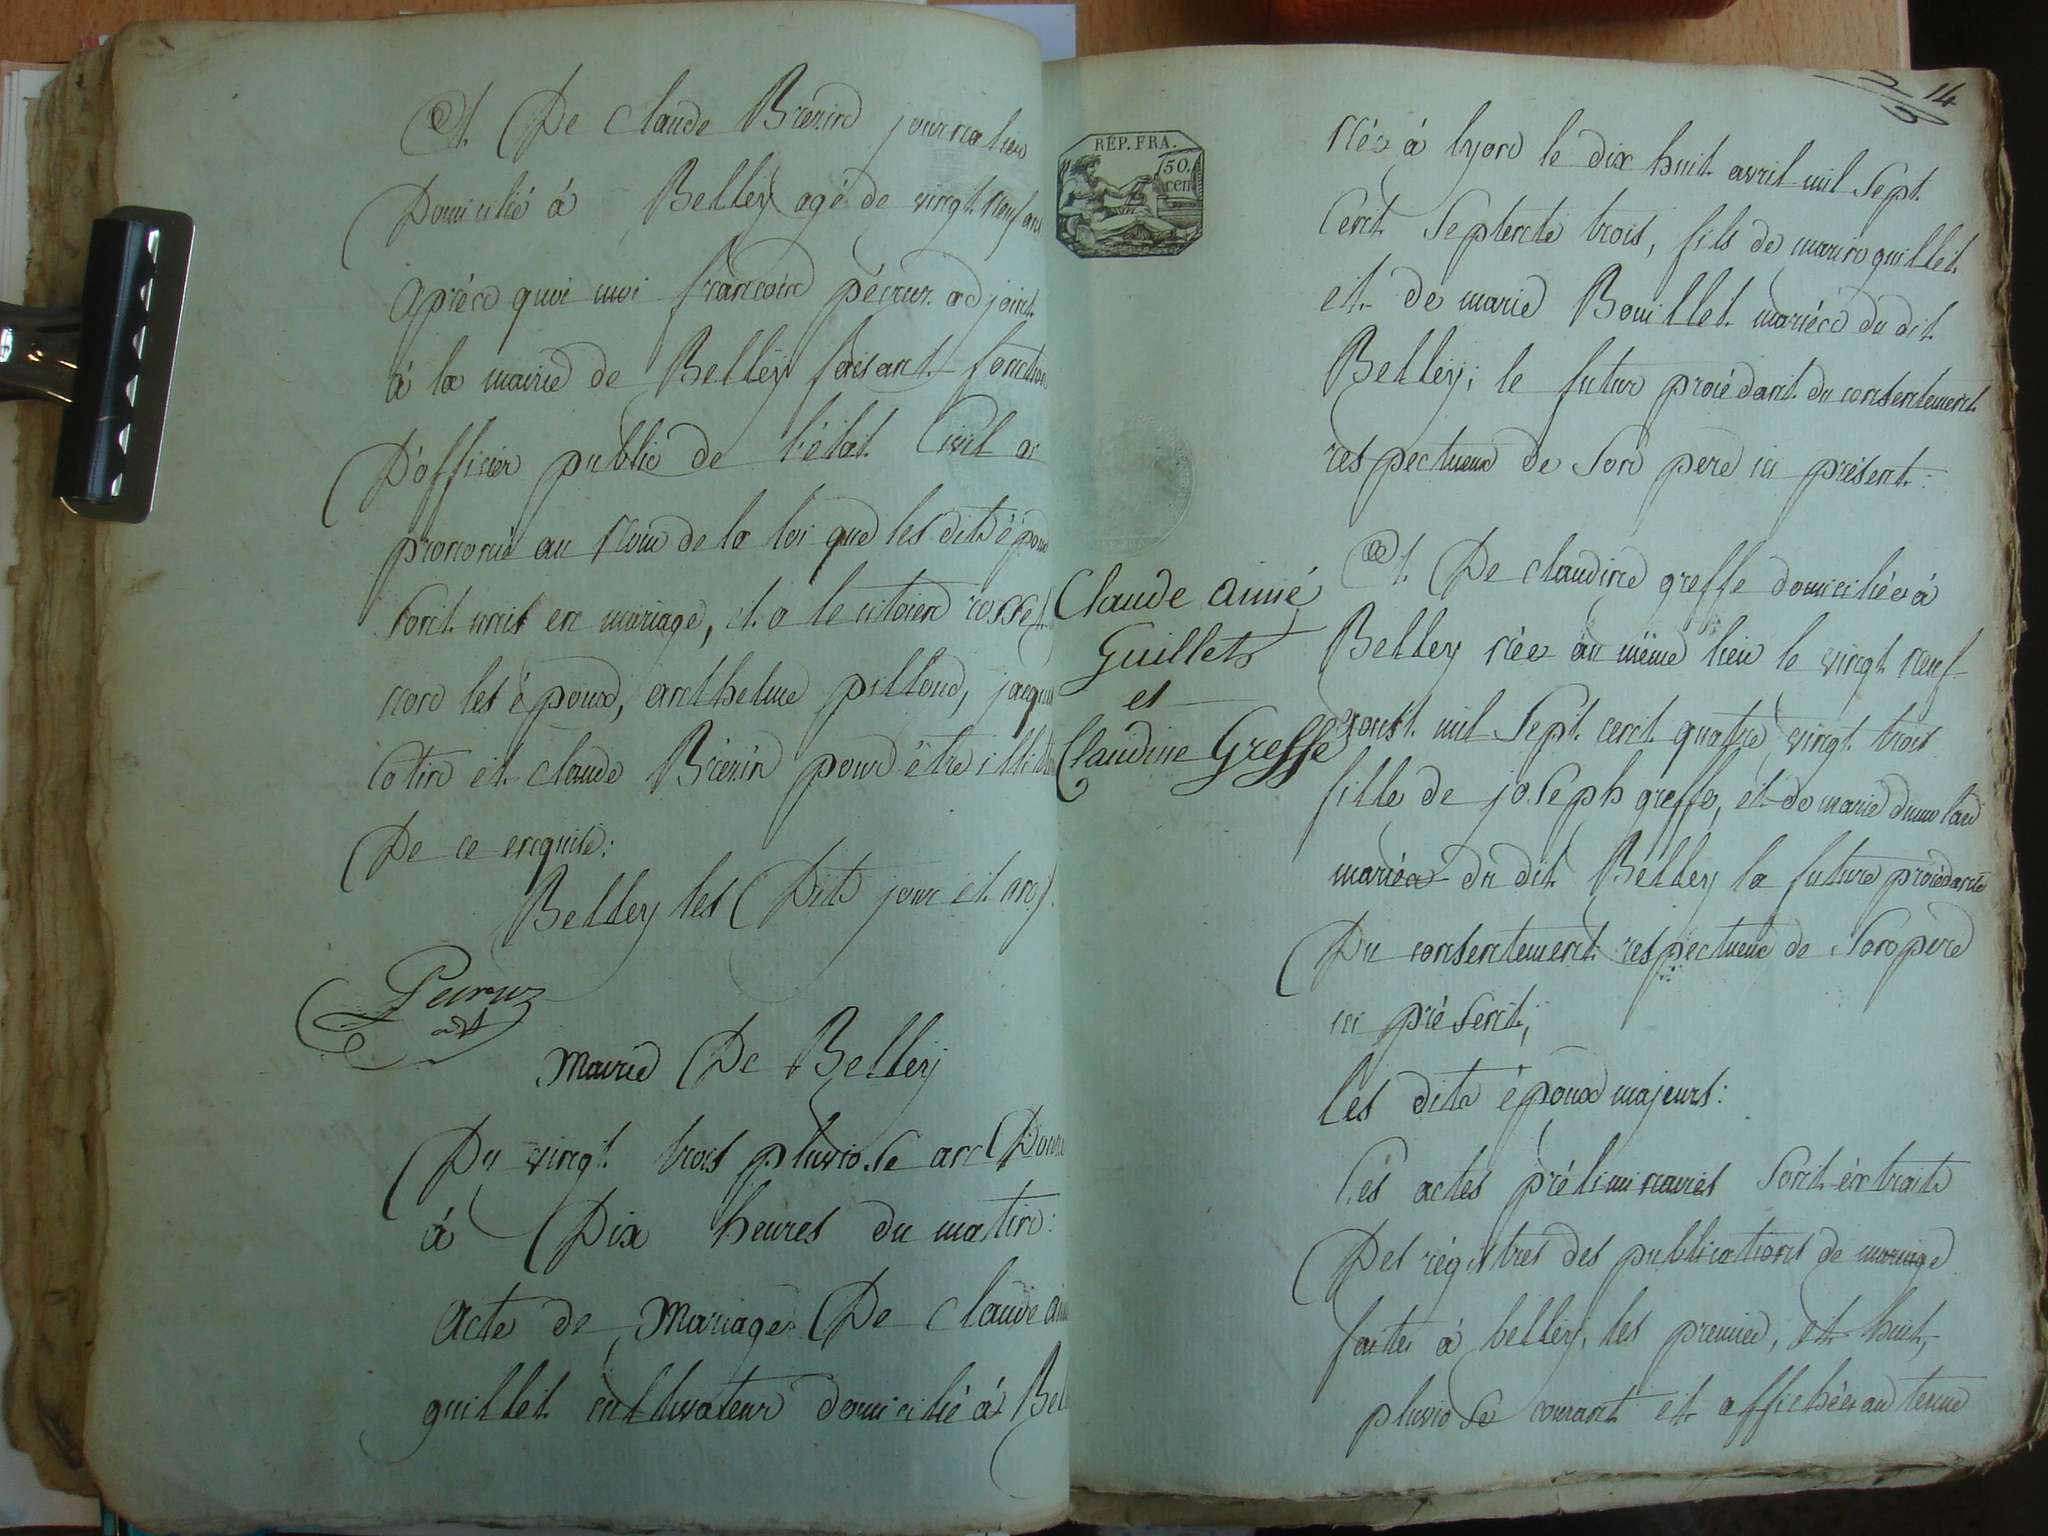 Et De Claude Brerin journalier
Domicilié à Belley agé de vingt neuf ans
après quoi moi françois adjoint
à la mairie de Belley faisant fonction
D'officier public de l'état Civil ai
prononcé au Nom de la loi que les dits époux
sont unis en mariage, et a le citoien rosset
non les époux, anthelme pilloud, jacques
Cotin et Claude Brerin pour être illitérés
De ce enquis:
Belley les Dits jour et an.
Peiruz
adt
Mairie De Belley
Du vingt trois pluviose an Douze
à Dix heures du matin:
Acte de Mariage De Claude aimé
guillet cultivateur domicilié à Bel
14
RÉP. FRA.
50.
cen
née à lyon le dix huit avril mil Sept
Cent Septente trois, fils de marin guillet
et de marie Bouillet mariés du dit
Belley; le futur procédant du consentement
respectueux de Son pere ici présent:
Claude aimé
Guillet
et
Claudine Greffe
Et De Claudine greffe domiciliée à
Belley née au même lieu le vingt neuf
aoust mil Sept cent quatre vingt trois
fille de joseph greffe, et de marie
mariés du dit Belley la future procédante
Du consentement respectueux de Son pere
ici présent;
les dits époux majeurs:
Ces actes préliminaires Sont éxtraits
Des régistres des publications de mariage
faites à belley, les premier, et huit,
pluviose courant et affichées au terme